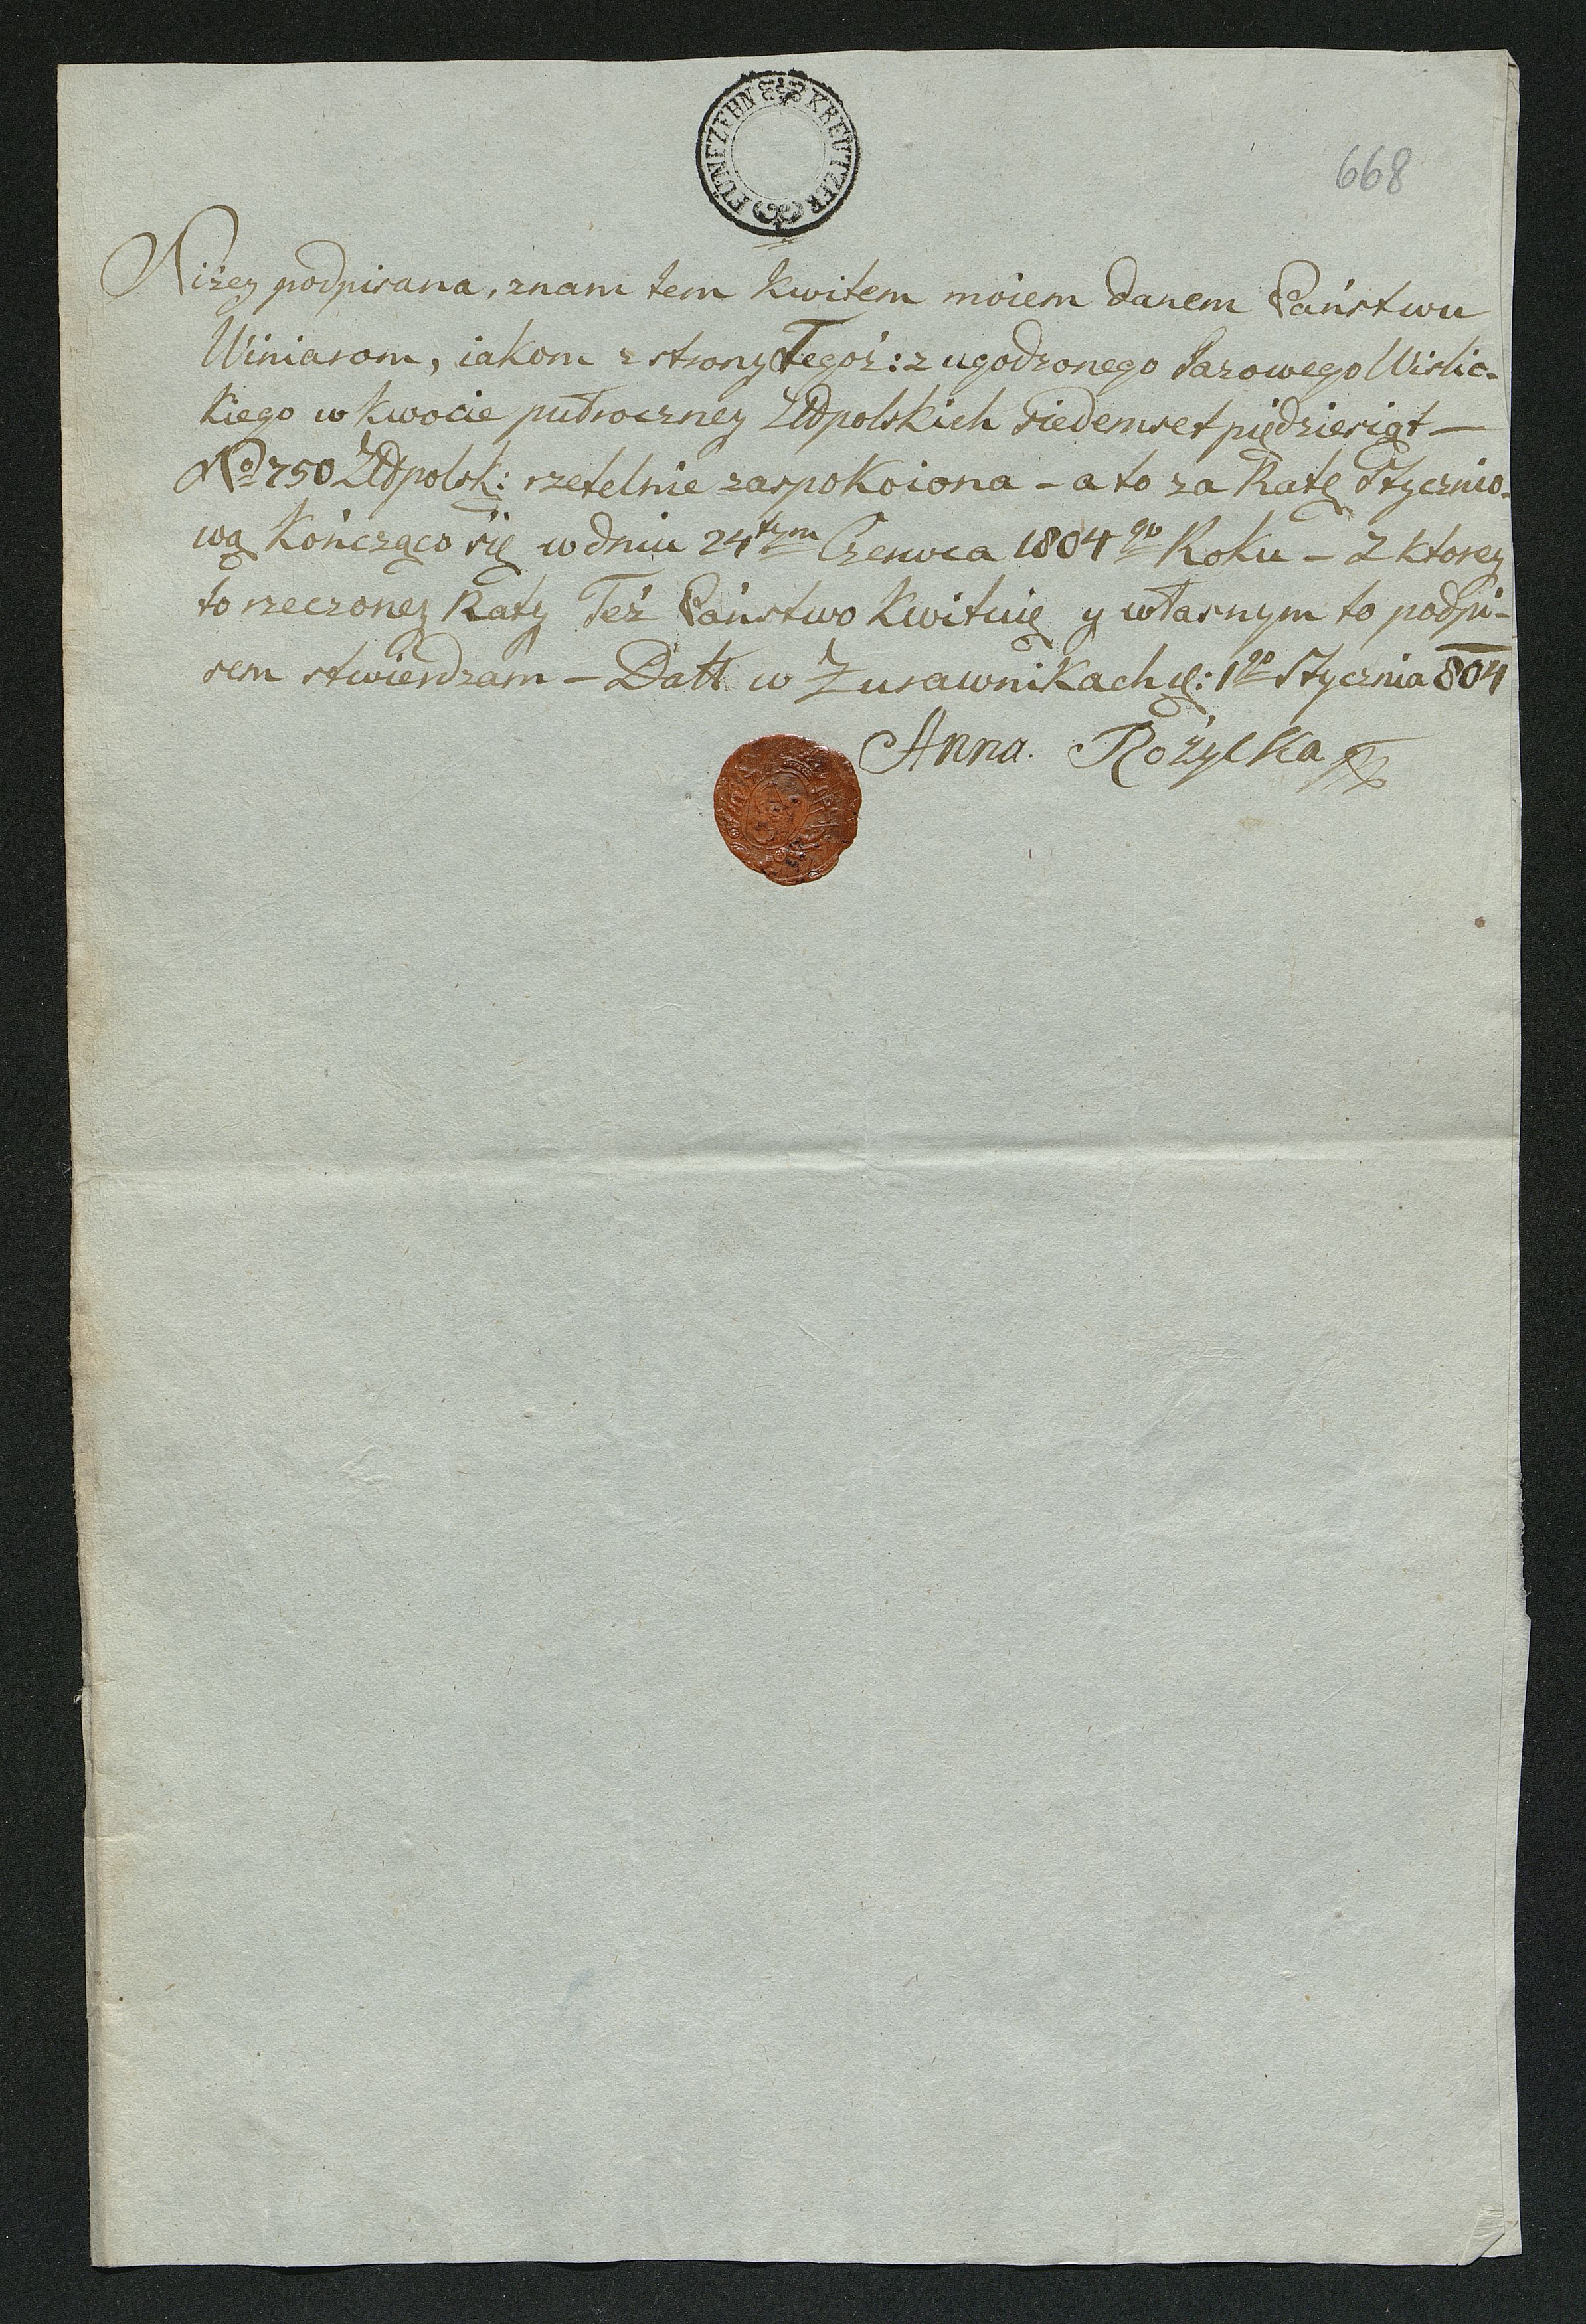 FUNFZEHN KREUTZER
668
Niżey podpisana, znam tem kwitem moiem danem Państwu
Winiarom, iakom z strony Tegoż: z ugodzonego Sazowego Wiślic-
kiego w kwocie pułroczney Złłpolskich siedemset piędziesiąt —
No 750 Złłpolsk: rzetelnie zaspokoiona – a to za Ratę Stycznio-
wą kończąco się w dniu 24tym Czerwca 1804go Roku – z ktorey
to rzeczoney Raty Też Państwo kwituię y własnym to podpi-
sem stwierdzam – Datt w Zurawnikach d: 1go Stycznia 804
Anna Rożycka